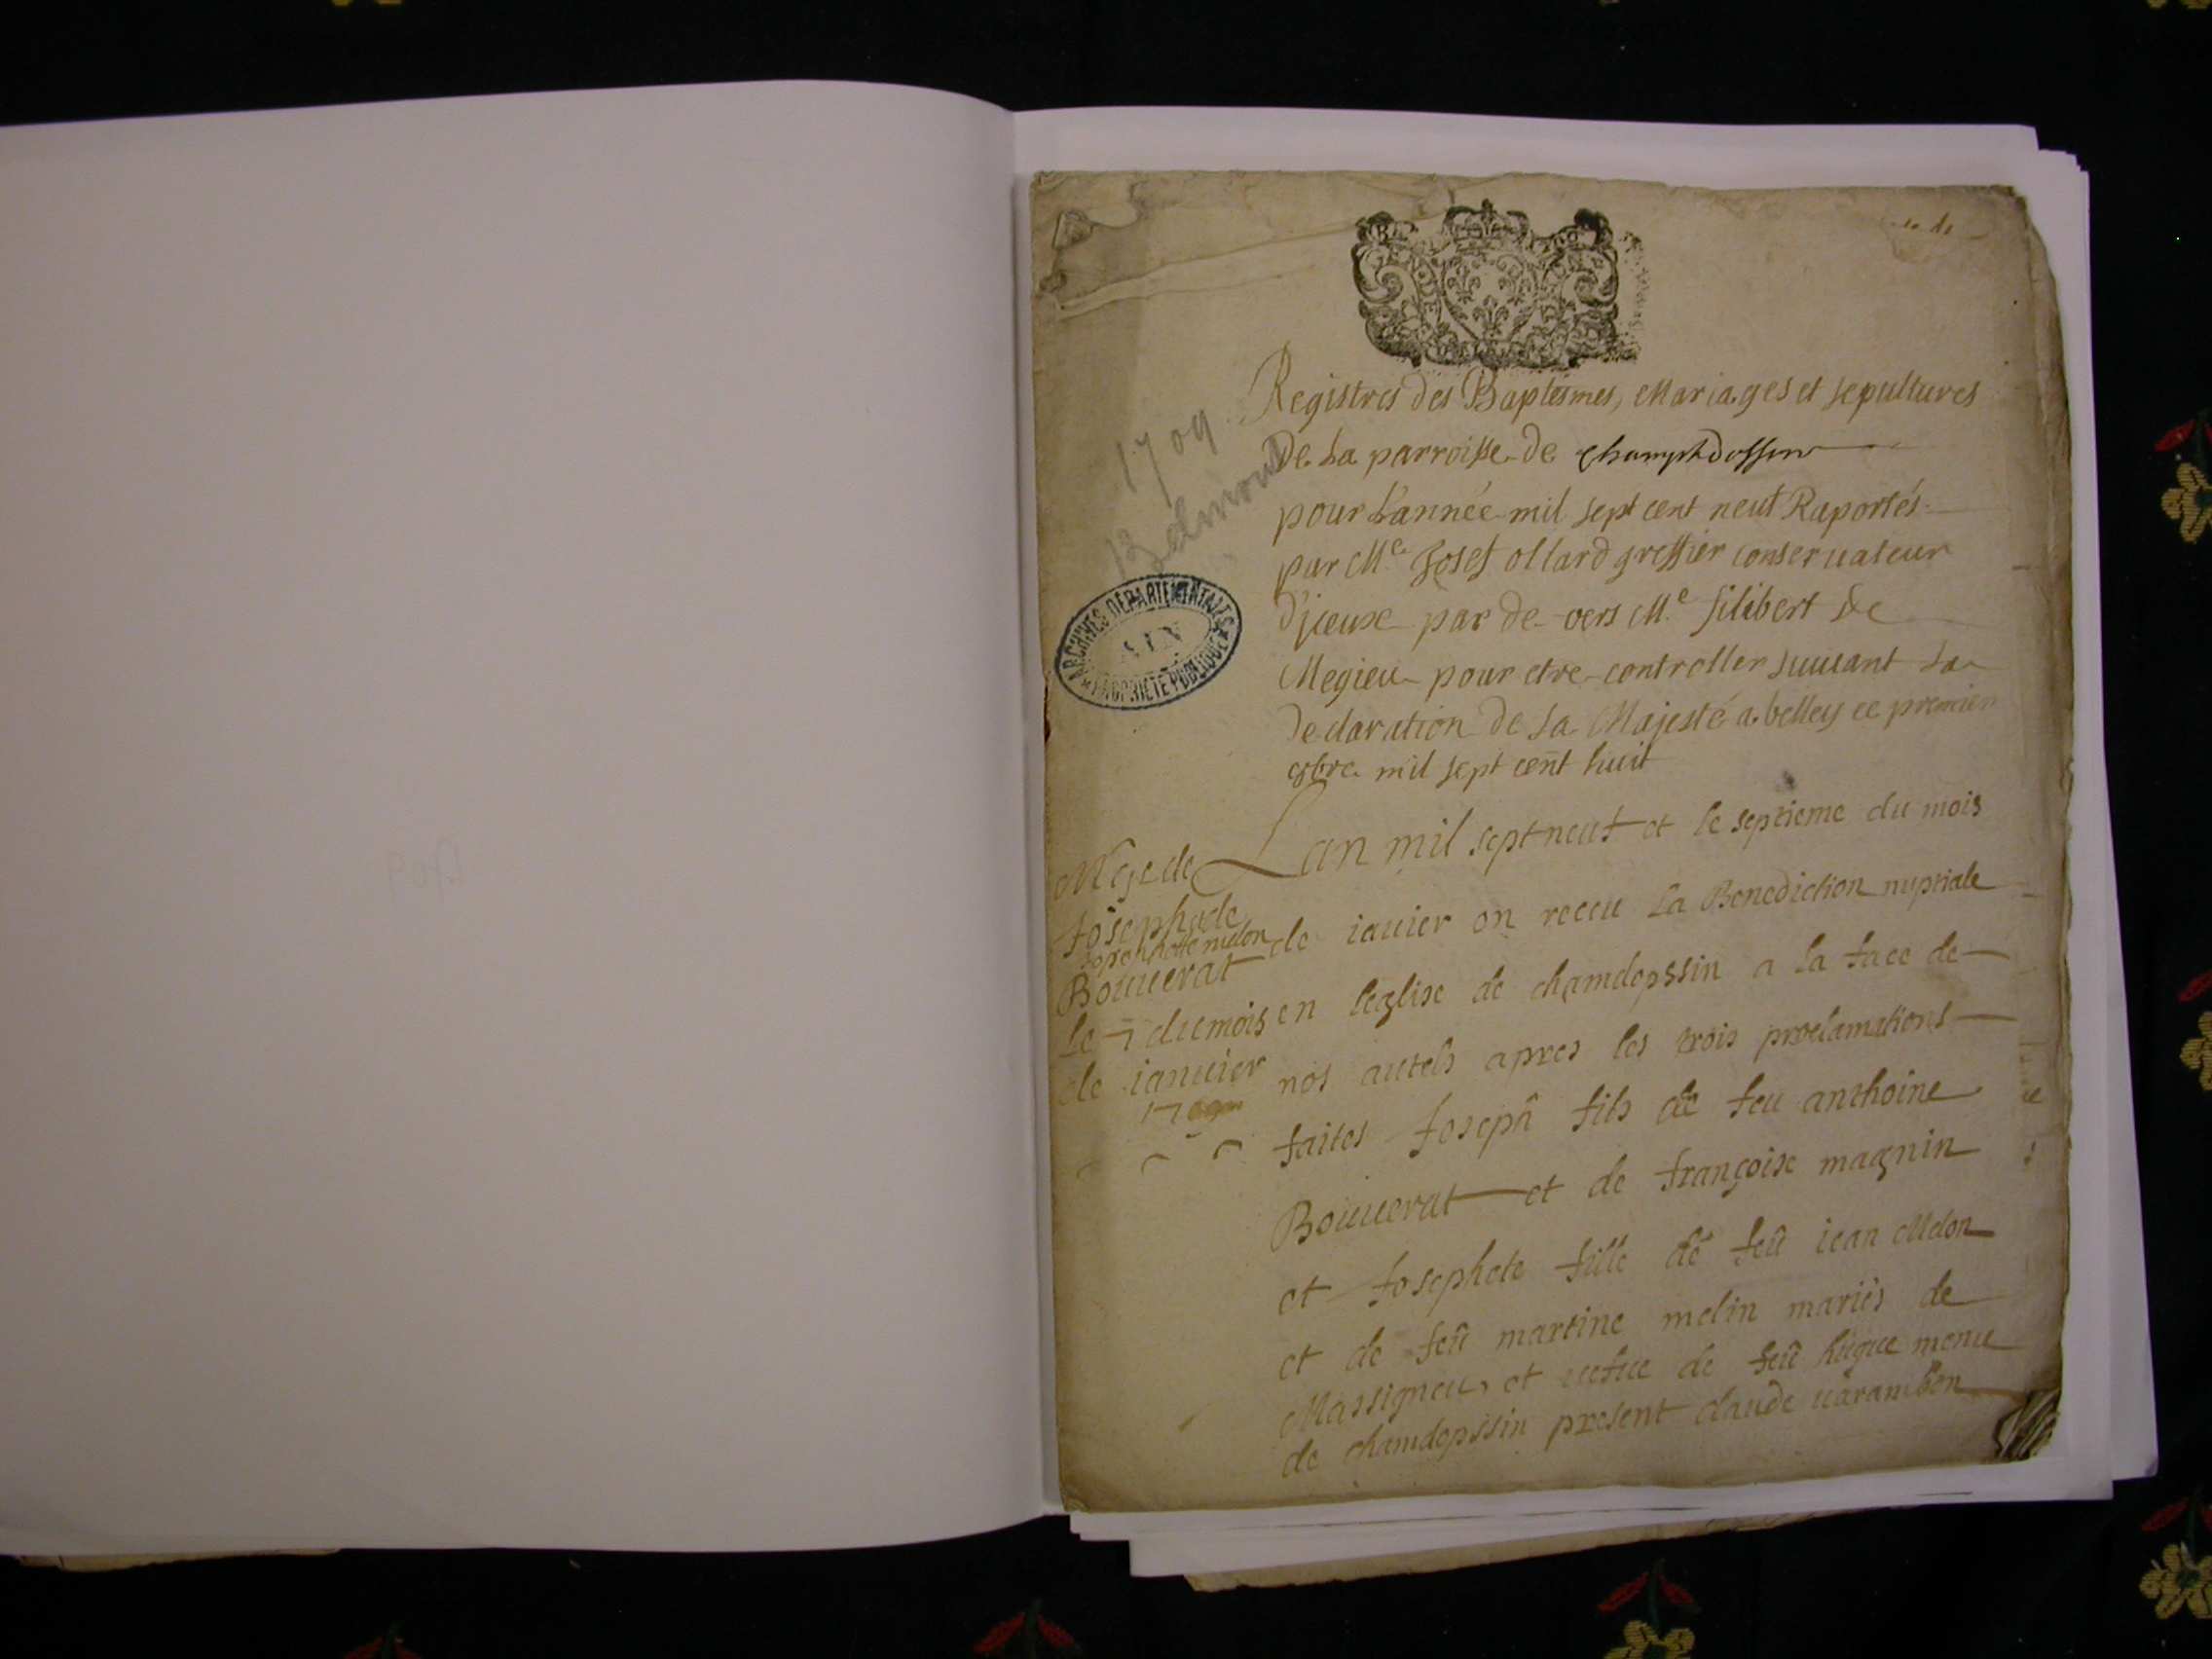 1709
Belmont
ARCHIVES DEPARTEMENTALES
AIN
PROPRIETE PUBLIQUE
Registres des Baptesmes, Mariages et sepultures
De La parroisse de champtdossin
pour L'année mil sept cent neuf Raportés
par Me Josef ollard greffier conseruateur
D'jceux par de vers Me filibert De
Megieu pour etre controller suiuant La
Declaration de Sa Majesté a belley ce premier
mil sept cent huit
Mge de
Joseph de
Josephatte melon
Bouuerat
Le 7 du mois
de ianuier
1709
Lan mil sept neuf et le septieme du mois
de iauier on receu La Benediction nuptiale
en leglise de chamdopssin a la face de
nos autels apres les trois proclamations
faites Joseph fils de feu anthoine
Bouuerat et de françoise magnin
et Josephete fille de feû iean Melon
et de feû martine melin mariés de
Massigneu, et uefue de feû hugue menu
de chamdopssin present claude uarambon